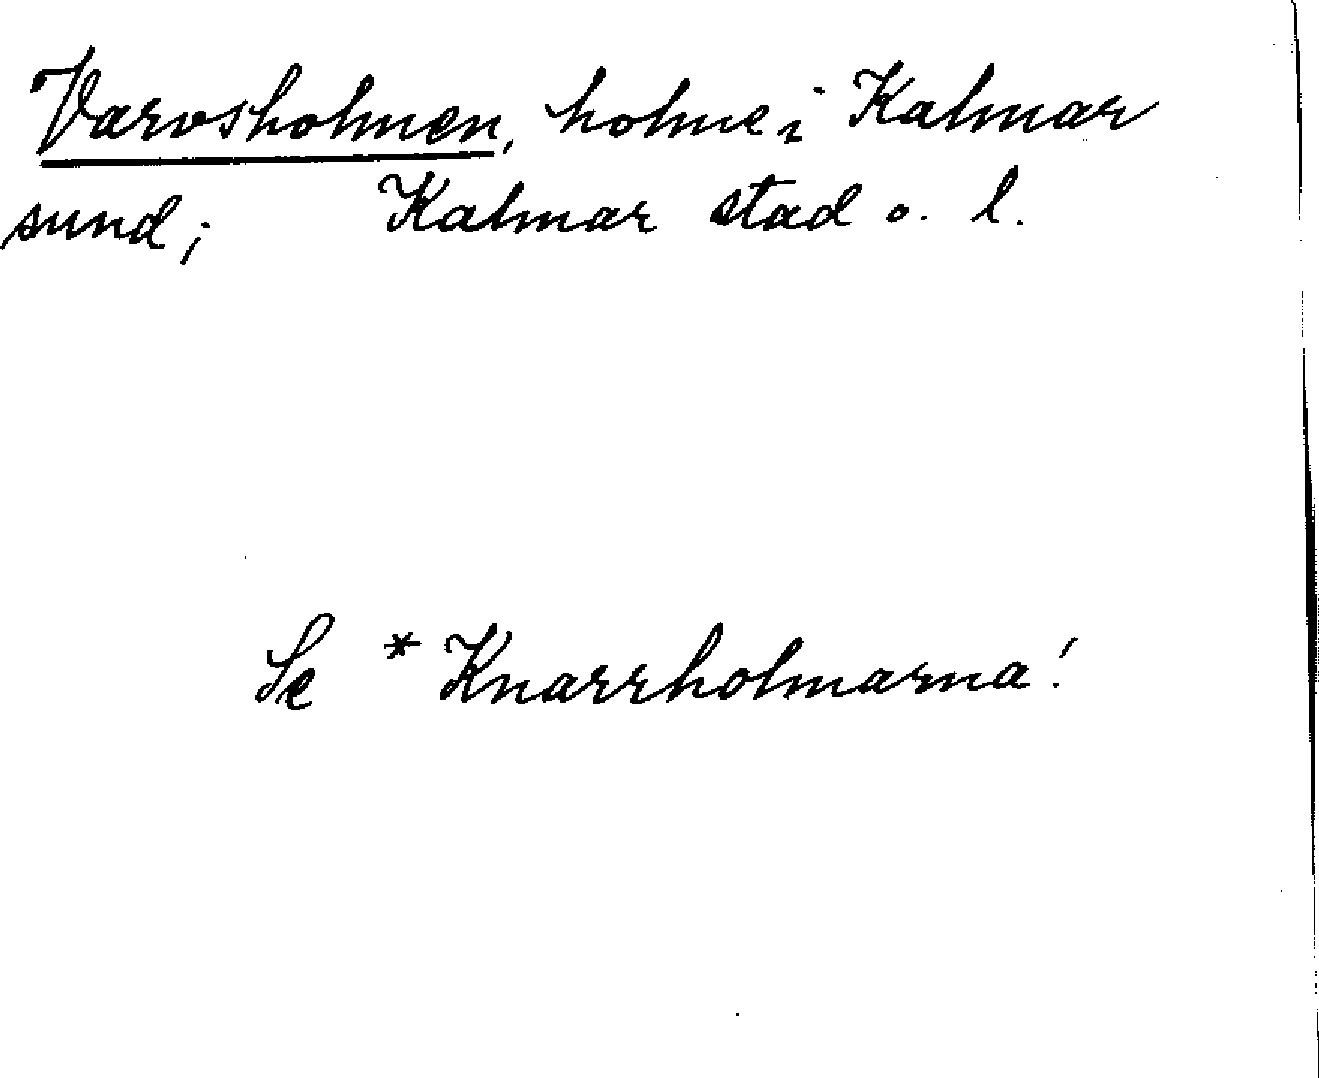 Varvsholmen, holme i Kalmar
sund; Kalmar stad o. l.
Se *Knarrholmarna!